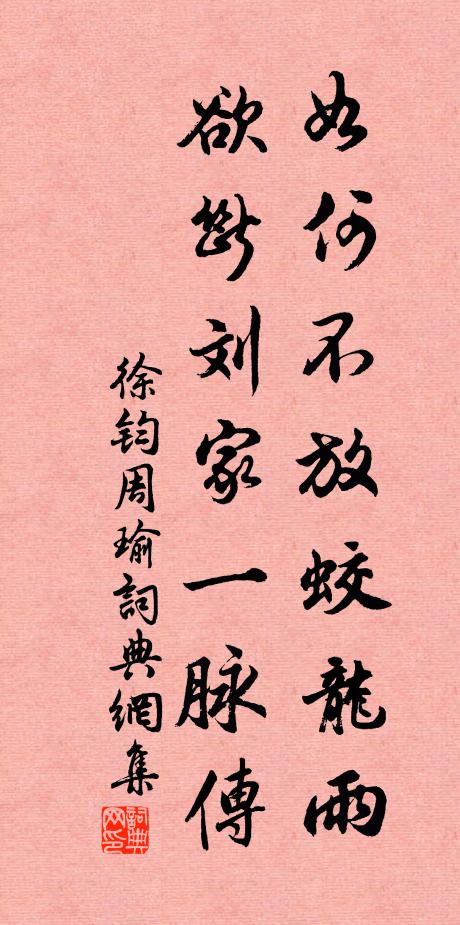 如何不放蛟龍雨
欲斷刘家一脉傳
徐鈞周瑜詞典網集
詞典网印